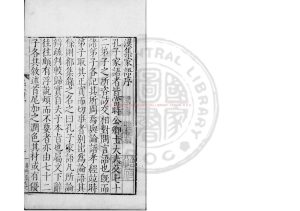 漢集家語序
孔子家語者皆當時公卿士大夫及七十
二弟子之所咨訪交相對問言語也既而
諸弟子各記其所問焉與論語孝經並時
弟子取其正實而切事者別出為論語其
餘則都集錄之名之曰孔子家語凡所論
辯疏判較歸實自夫子本旨也屬文下辭
往往頗有浮說煩而不要者亦由七十二
子各共敘述首尾加之潤色其材或有優